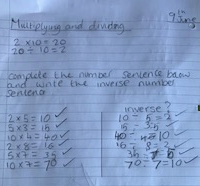 9th June
Multiplying and dividing
2 × 10 = 20
20 ÷ 10 = 2
complete the number sentence below
and write the inverse number
sentence
inverse?
2 × 5 = 10 ✓ 10 ÷ 5 = 2 ✓
5 × 3 = 15 ✓ 15 ÷ 3 = 5 ✓
10 × 4 = 40 ✓ 40 ÷ 4 = 10 ✓
2 × 8 = 16 ✓ 16 ÷ 8 = 2 ✓
5 × 7 = 35 ✓ 35 ÷ 7 = 5 ✓
10 × 7 = 70 ✓ 70 ÷ 7 = 10 ✓